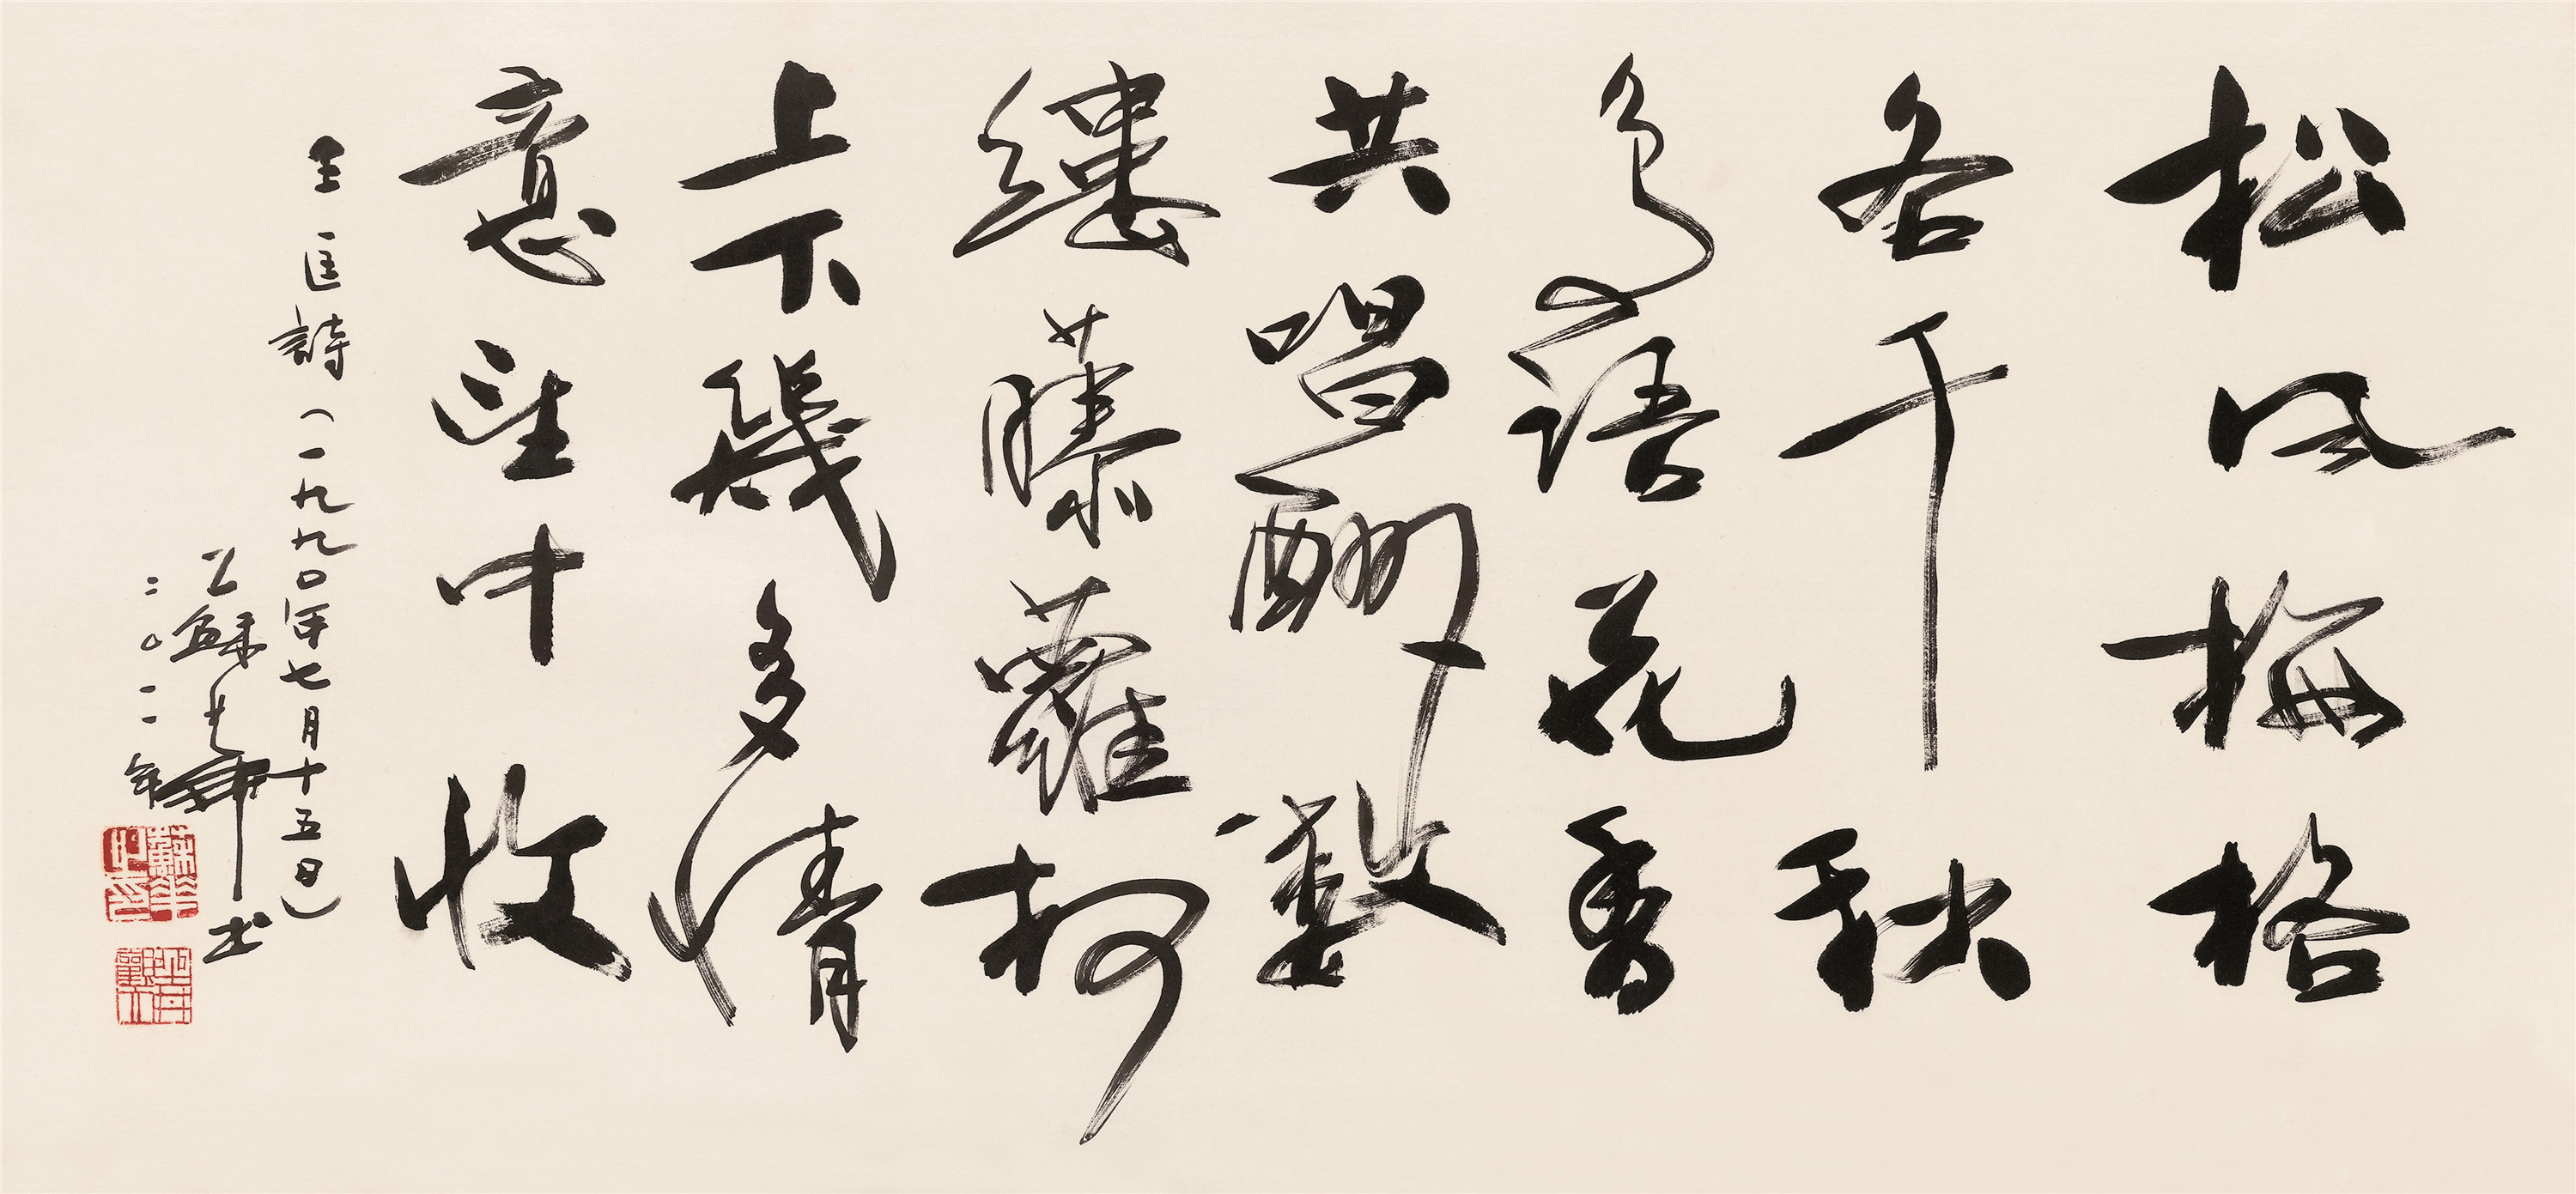 松风梅格
各千秋
鳥語花香
共唱酬數
縷藤蘿柯
上下幾多情
意望中收
王匡詩(一九九〇年七月十五日)
蘇華書
二〇一一年